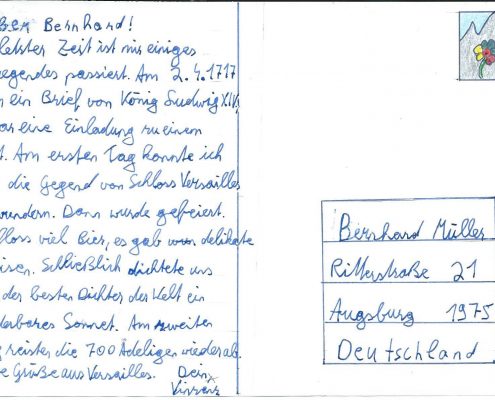 ber Bernhard!
letzter Zeit ist mir einiges
regendes passiert. Am 2.4.1717
ein Brief von König Ludwig XIV,
ar eine Einladung zu einem
t. Am ersten Tag konnte ich
die Gegend von Schloss Versailles
wundern. Dann wurde gefeiert.
loss viel Bier, es gab delikate
isen. Schließlich dichtete uns
der besten Dichter der Welt ein
derbares Sonnet. Am zweiten
g reisten die 700 Adeligen wieder ab.
e Grüße aus Versailles. Dein
Vinzenz
Bernhard Müller
Ritterstraße 21
Augsburg 1975
Deutschland